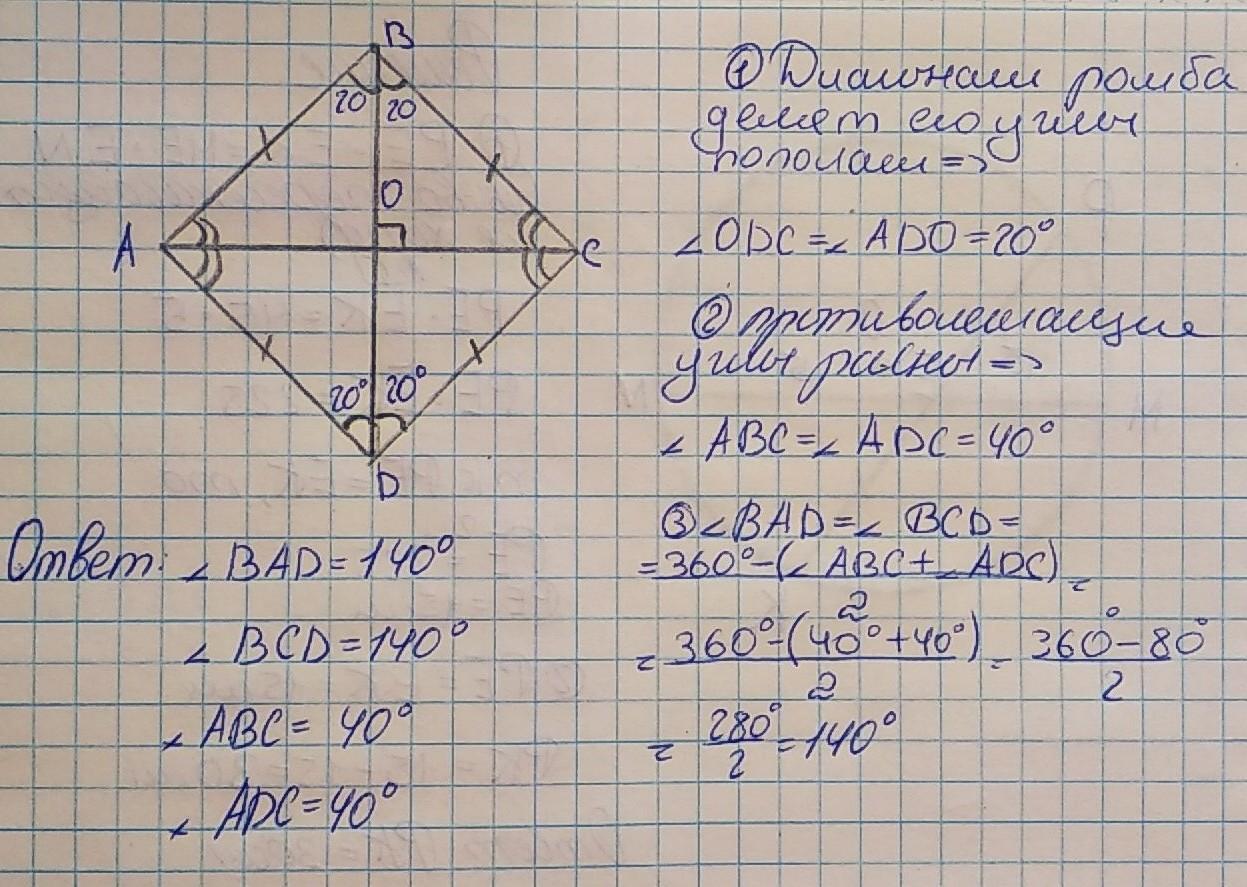 B
20 20
O
A
C
20° 20°
D
① Диагонали ромба
делят его углы
пополам =>
∠ODC=∠ADO=20°
② противолежащие
углы равны =>
∠ABC=∠ADC=40°
③ ∠BAD=∠BCD=
=360°-(∠ABC+∠ADC) =
2
= 360°-(40°+40°) = 360°-80°
2 2
= 280° = 140°
2
Ответ: ∠BAD=140°
∠BCD=140°
∠ABC=40°
∠ADC=40°